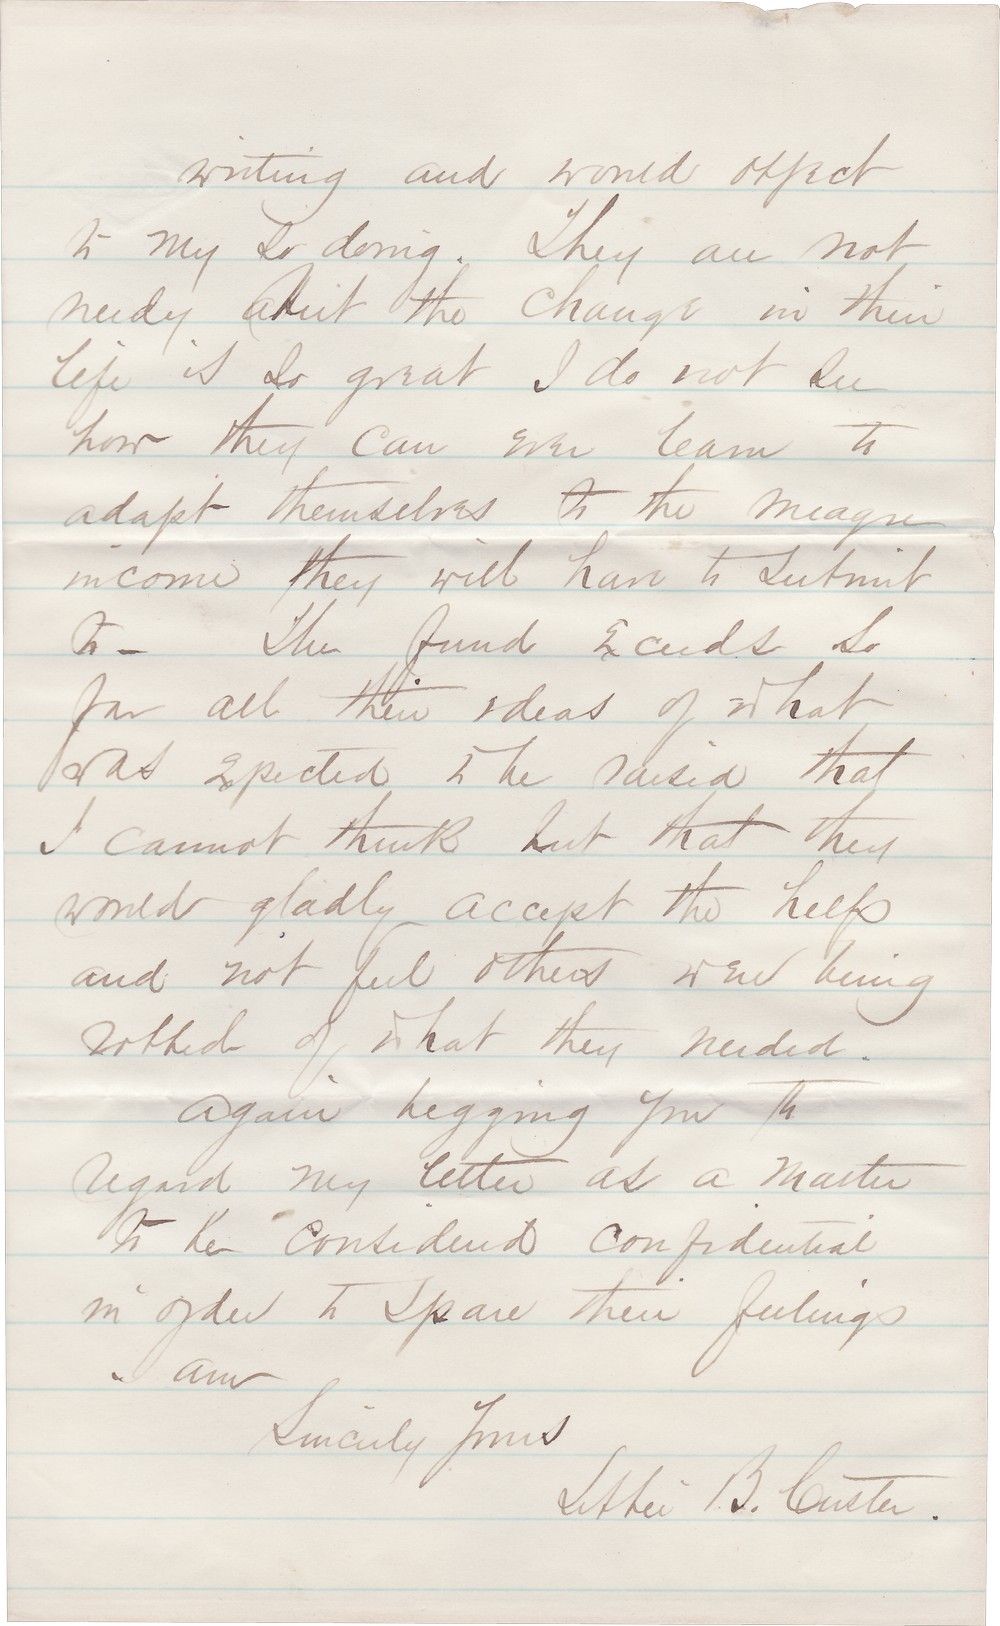 writing and would object
to my so doing. They are not
needy but the change in their
life is so great I do not see
how they can ever learn to
adapt themselves to the meagre
income they will have to submit
to - The fund exceeds so
far all their ideas of what
was expected to be raised that
I cannot think but that they
would gladly accept the help
and not feel others were being
robbed of what they needed.
Again begging you to
regard my letter as a matter
to be considered confidential
in order to spare their feelings
I am
Sincerely Yours
Libbie B. Custer.